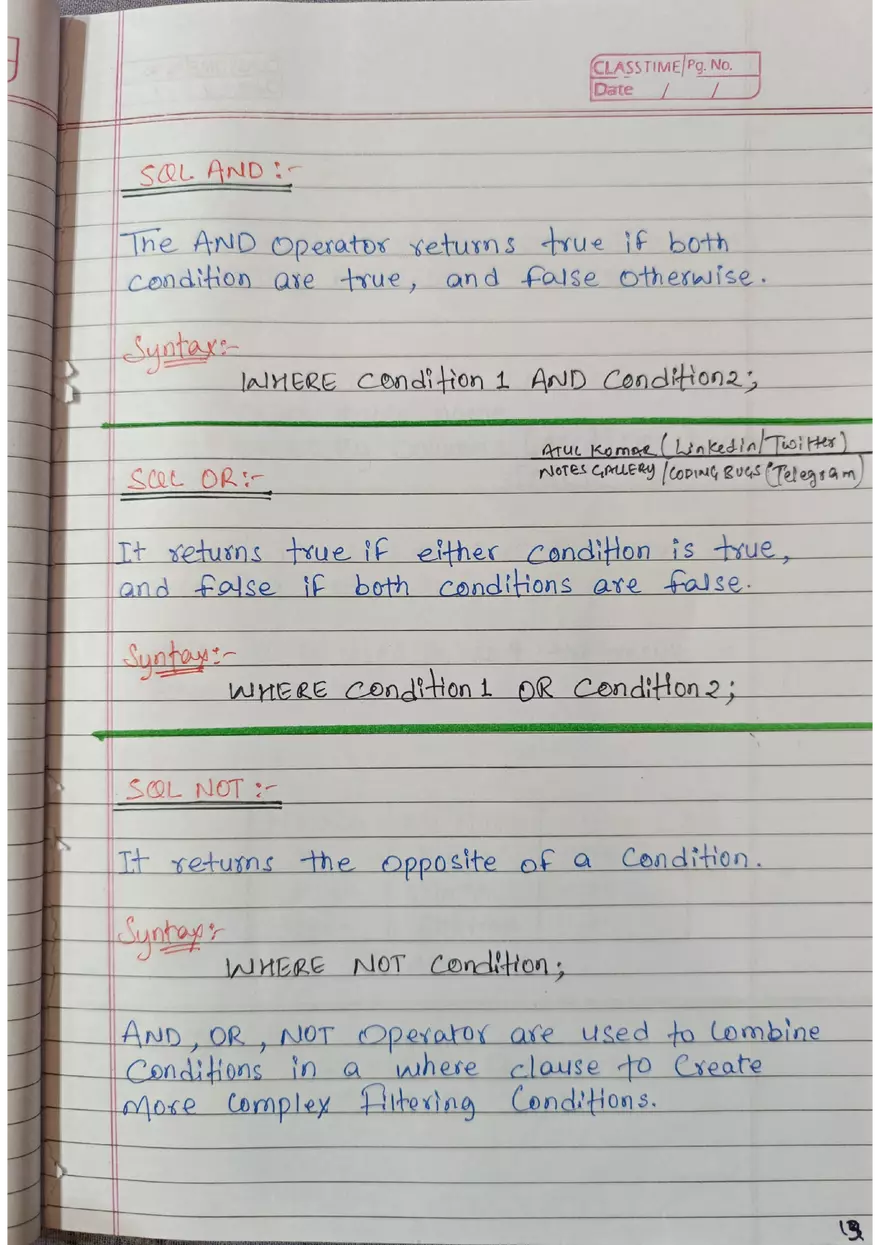 CLASSTIME Pg. No.
Date / /
SQL AND :-
The AND Operator returns true if both
condition are true, and false otherwise.
Syntax:-
WHERE Condition 1 AND Condition2;
ATUL KUMAR (LinkedIn/Twitter)
NOTES GALLERY / CODING BUGS (Telegram)
SQL OR:-
It returns true if either condition is true,
and false if both conditions are false.
Syntax:-
WHERE Condition 1 OR Condition 2;
SQL NOT :-
It returns the opposite of a Condition.
Syntax:-
WHERE NOT Condition;
AND, OR, NOT Operator are used to Combine
Conditions in a where clause to Create
More Complex Filtering Conditions.